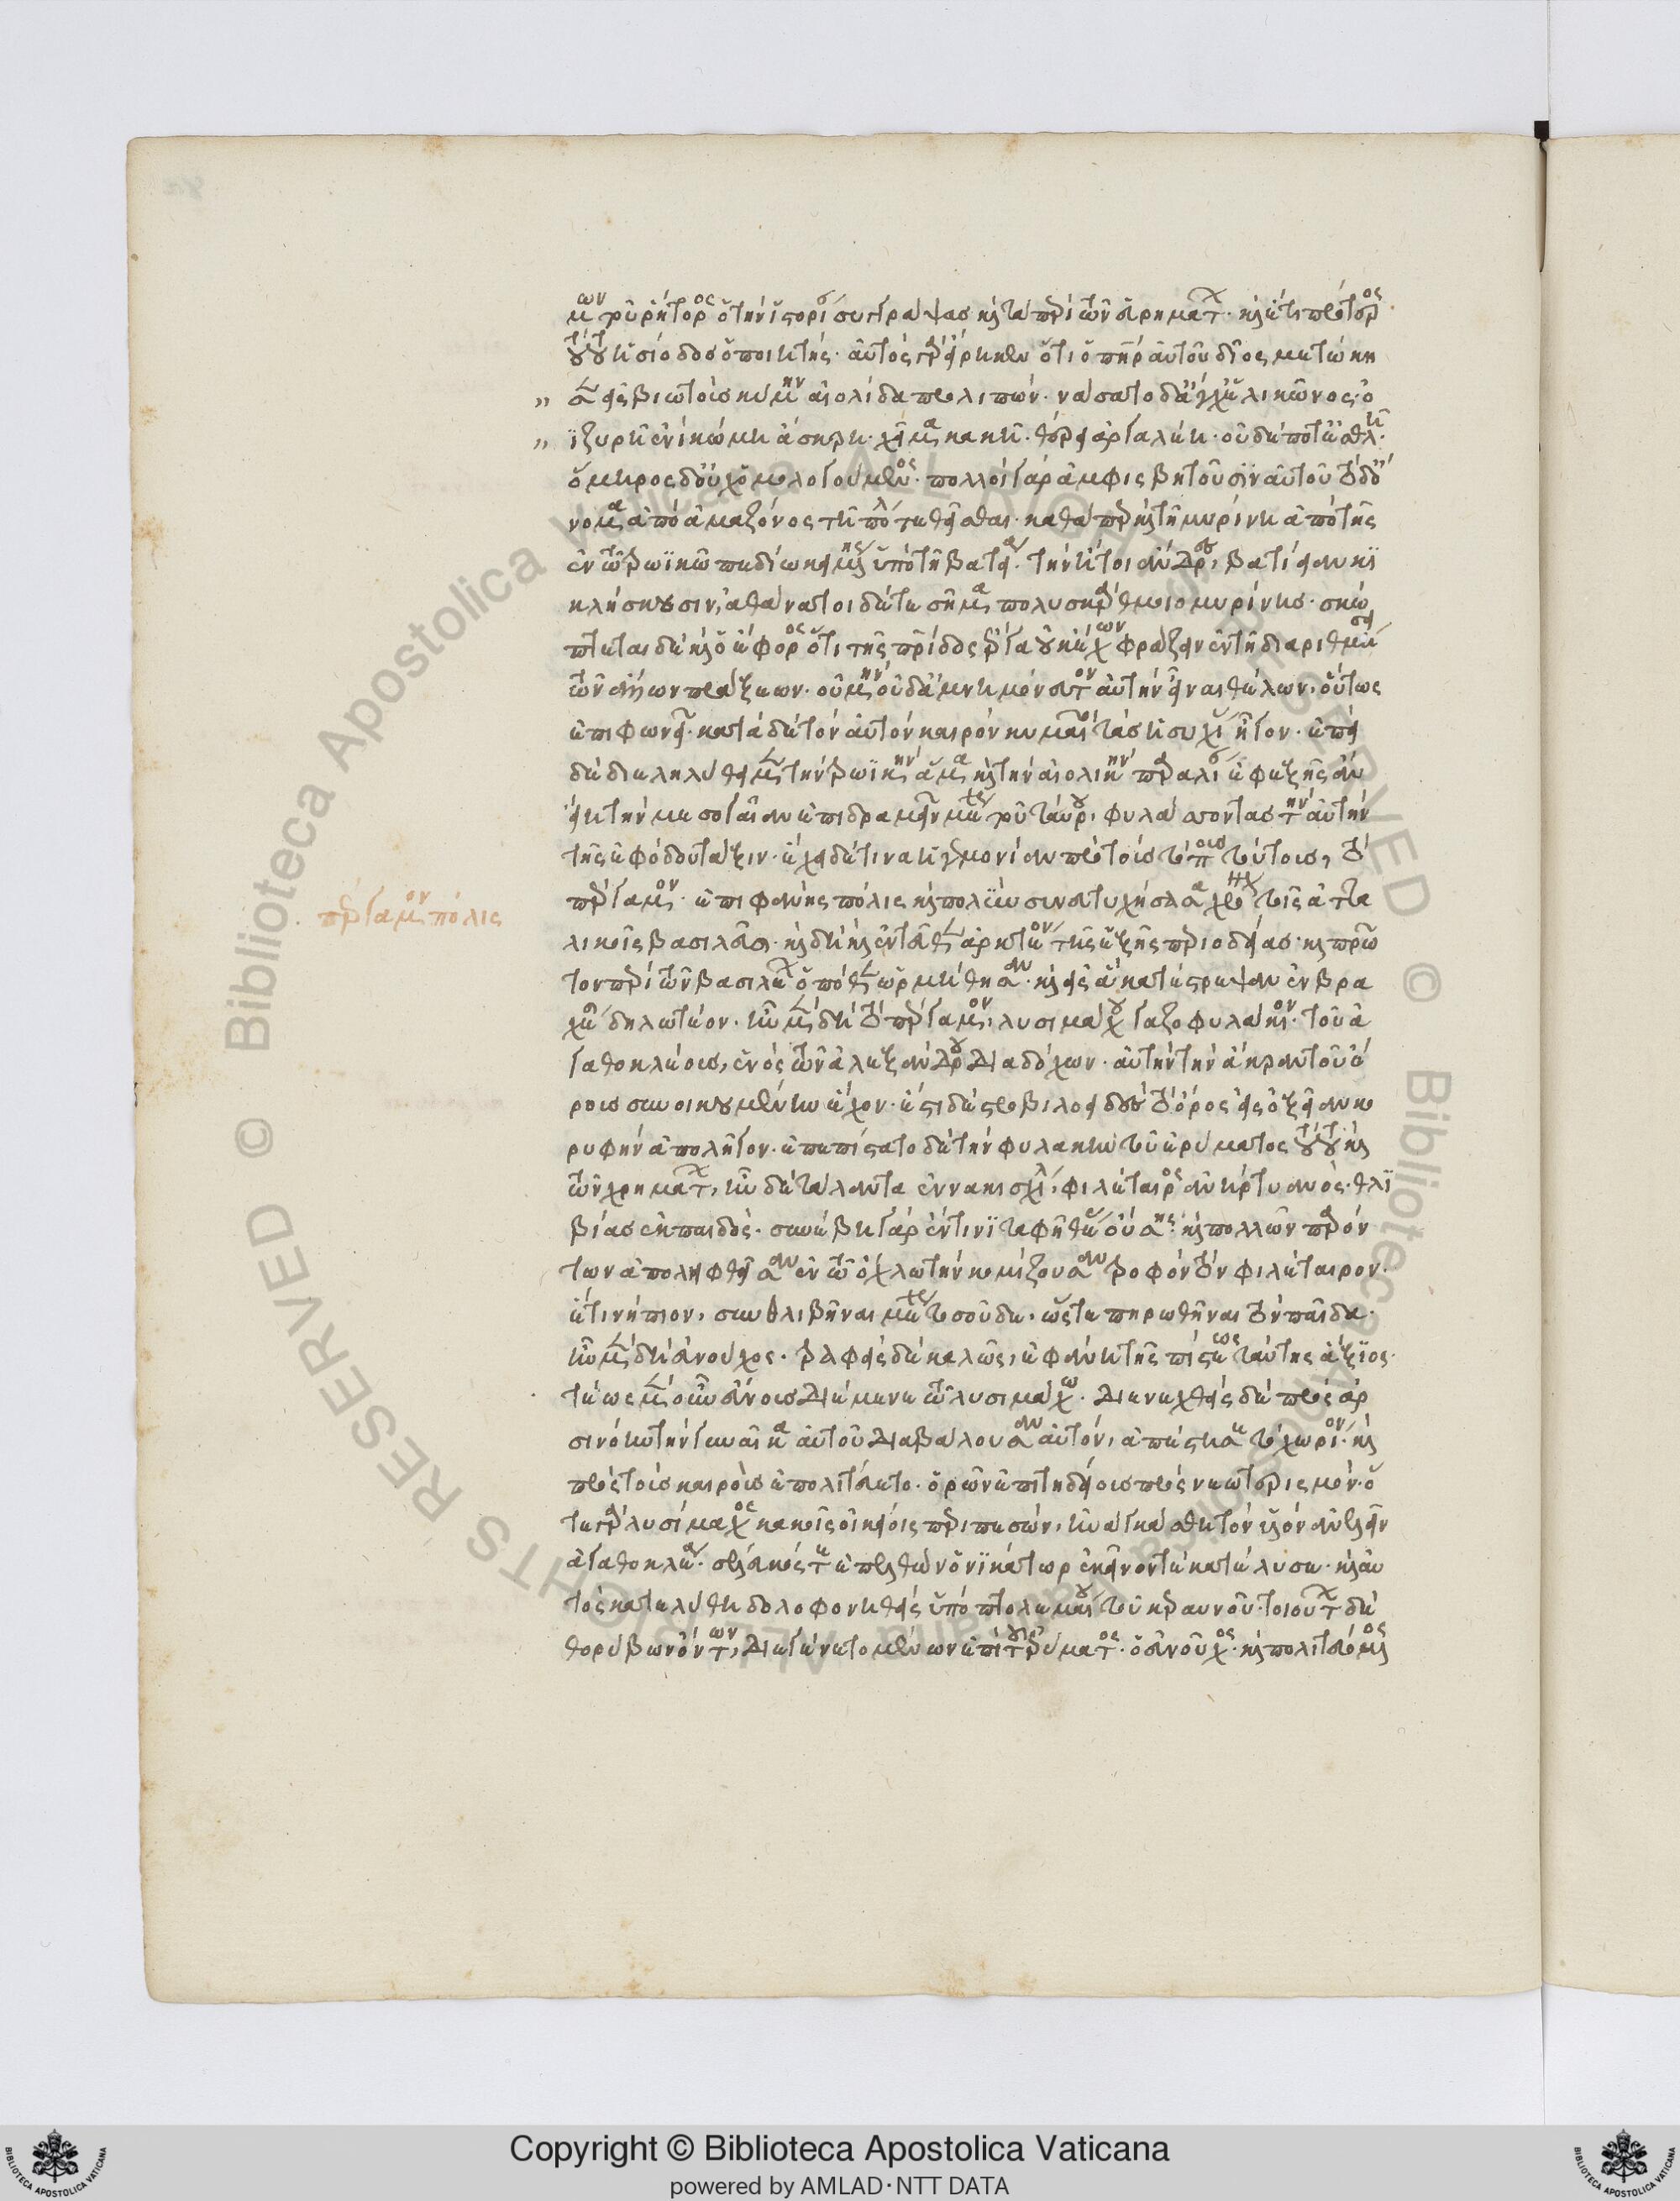 μων τοῦ ῥήτορος ὁ τὴν ἱστορίαν συγγράψας καὶ τὰ περὶ τῶν εὑρημάτων· καὶ ἔτι πρότερος
τούτου ἡσίοδος ὁ ποιητής· αὐτὸς γὰρ εἴρηκεν ὅτι ὁ πατὴρ αὐτοῦ δῖος μετώκη
σεν εἰς βιωτοὺς κύμην αἰολίδα προλιπών· νάσατο δ' ἄγχ' ἑλικῶνος· ὀ
ϊζυρῆ ἐνὶ κώμη ἄσκρη· χεῖμα κακῆ· θέρει ἀργαλέη· οὐδέποτ' ἐσθλῆ·
ὅμηρος δ' οὐχ' ὁμολογούμενος· πολλοὶ γὰρ ἀμφισβητοῦσιν αὐτοῦ τὸ δ' ὄ
νομα ἀπὸ ἀμαζόνος τῆ πόλει τεθεῖσθαι· καθάπερ καὶ τῆ μυρίνη ἀπὸ τῆς
ἐν τῶ τρωϊκῶ πεδίω κειμένης ὑπὸ τῆ βατεία· τὴν ἤτοι ἄνδρες βατίειαν κι
κλήσκουσιν, ἀθάνατοι δέ τε σῆμα πολυσκάρθμοιο μυρίνης· σκώ
πτεται δὲ καὶ ὁ ἔφορος ὅτι τῆς πατρίδος ἔργα οὐκ ἔχων φράζειν ἐν τῆ διαριθμήσει
τῶν ἄλλων πράξεων· οὐ μὴν οὐδ' ἀμνημόνευτον αὐτὴν εἶναι θέλων, οὕτως
ἐπιφωνεῖ· κατὰ δὲ τὸν αὐτὸν καιρὸν κυμαῖοι τὰς ἡσυχίας ἦγον· ἐπεὶ
δὲ διεληλύθαμεν τὴν τρωϊκὴν ἅμα καὶ τὴν αἰολικὴν παραλίαν ἐφεξῆς ἂν
εἴη τὴν μεσογαῖαν ἐπιδραμεῖν μέχρι τοῦ ταύρου, φυλάττοντας τὴν αὐτὴν
τῆς ἐφόδου τάξιν· ἔχει δέ τινα ἡγεμονίαν πρὸς τοὺς τόπους τούτους, τὸ
πέργαμον· ἐπιφανὴς πόλις καὶ πολὺν συνευτυχήσασα χρόνον τοῖς ἀττα
πέργαμον πόλις
λικοῖς βασιλεῦσι· καὶ δὴ καὶ ἐντεῦθεν ἀρκτέον τῆς ἑξῆς περιοδείας· καὶ πρῶ
τον περὶ τῶν βασιλέων ὁπόθεν ὡρμήθησαν· καὶ εἰς ἃ κατέστρεψαν ἐν βρα
χεῖ δηλωτέον. ἦν μὲν δὴ τὸ πέργαμον, λυσιμάχου γαζοφυλάκιον· τοῦ ἀ
γαθοκλέους, ἑνὸς τῶν ἀλεξάνδρου διαδόχων· αὐτὴν τὴν ἄκραν τοῦ ὄ
ρους συνοικουμένην ἔχον· ἔστι δὲ στροβιλοειδὲς τὸ ὄρος εἰς ὀξεῖαν κο
ρυφὴν ἀπολῆγον· ἐπεπίστευτο δὲ τὴν φυλακὴν τοῦ ἐρύματος τούτου καὶ
τῶν χρημάτων, ἦν δὲ τάλαντα ἐννακισχίλια, φιλέταιρος ἀνὴρ τυανὸς· θλι
βίας ἐκ παιδὸς· συνέβη γὰρ ἔν τινι ταφῆ θέας οὔσης· καὶ πολλῶν παρόν
των ἀποληφθεῖσαν ἐν τῶ ὄχλω τὴν κομίζουσαν τροφὸν τὸν φιλέταιρον·
ἔτι νήπιον, συνθλιβῆναι μέχρι τοσοῦδε, ὥστε πηρωθῆναι τὸν παῖδα·
ἦν μὲν δὴ εὐνοῦχος· τραφεὶς δὲ καλῶς, ἐφάνη τῆς πίστεως ταύτης ἄξιος·
τέως μὲν οὖν εὔνους διέμεινε τῶ λυσιμάχω· διενεχθεὶς δὲ πρὸς ἀρ
σινόην τὴν γυναῖκα αὐτοῦ διαβάλουσαν αὐτὸν, ἀπέστησε τὸ χωρίον· καὶ
πρὸς τοὺς καιροὺς ἐπολιτεύετο· ὁρῶν ἐπιτηδείους πρὸς νεωτερισμόν· ὅ
τε γὰρ λυσίμαχος κακοῖς οἰκείοις περιπεσών, ἠναγκάσθη τὸν υἱὸν ἀνελεῖν
ἀγαθοκλέα· σέλευκός τε ἐπελθὼν ὁ νικάτωρ ἐκεῖνόν τε κατέλυσε· καὶ αὐ
τὸς κατελύθη δολοφονηθεὶς ὑπὸ πτολεμαίου τοῦ κεραυνοῦ· τοιούτων δὲ
θορύβων ὄντων, διεγένετο μένων ἐπὶ τοῦ ἐρύματος· ὁ εὐνοῦχος· καὶ πολιτευόμενος